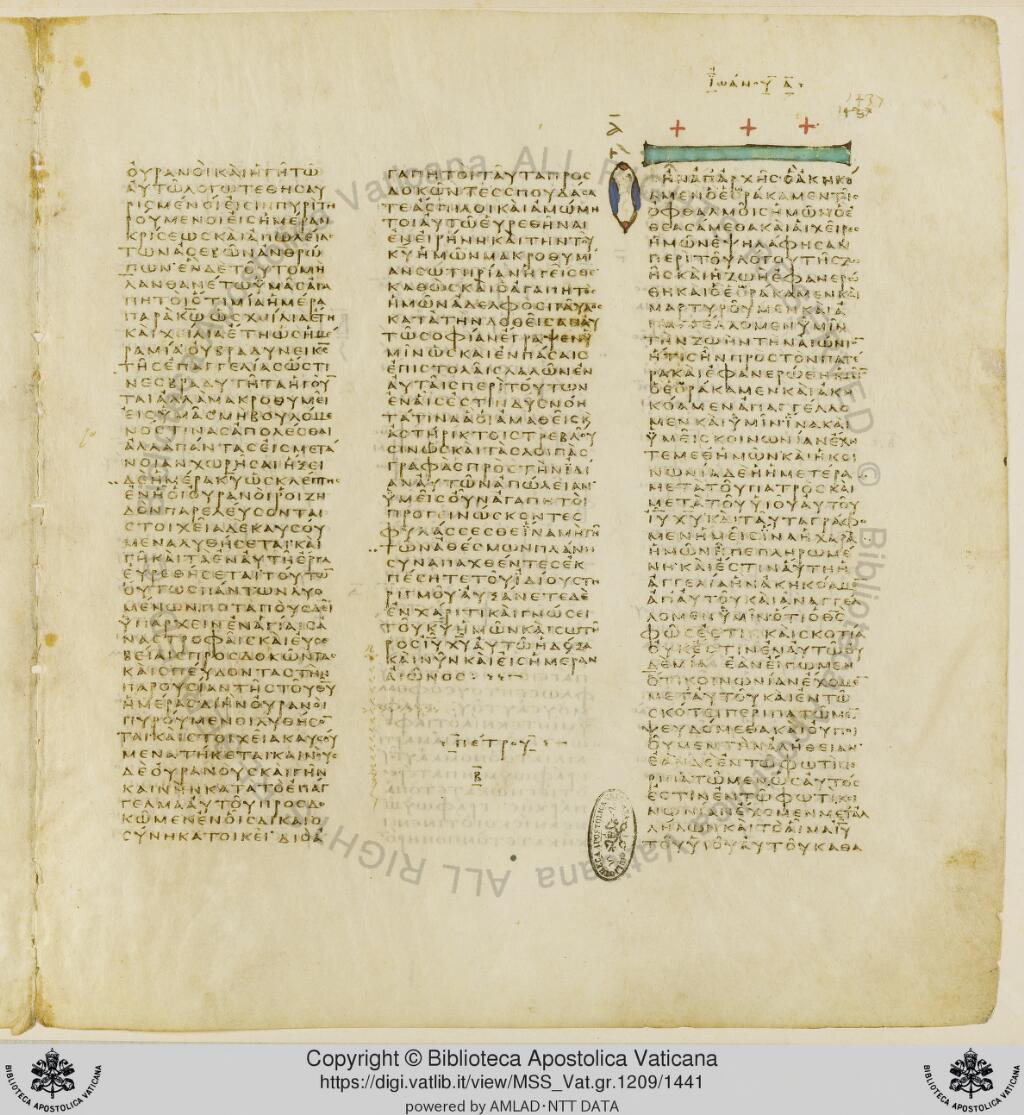 ΙΩΑΝΟΥ Α
1437
ΟΥΡΑΝΟΙΚΑΙΗΓΗΤΩ
ΑΥΤΩΛΟΓΩΤΕΘΗϹΑΥ
ΡΙϹΜΕΝΟΙΕΙϹΙΝΠΥΡΙΤΗ
ΡΟΥΜΕΝΟΙΕΙϹΗΜΕΡΑΝ
ΚΡΙϹΕΩϹΚΑΙΑΠΩΛΕΙΑϹ
ΤΩΝΑϹΕΒΩΝΑΝΘΡΩ
ΠΩΝΕΝΔΕΤΟΥΤΟΜΗ
ΛΑΝΘΑΝΕΤΩΥΜΑϹΑΓΑ
ΠΗΤΟΙΟΤΙΜΙΑΗΜΕΡΑ
ΠΑΡΑΚΩΩϹΧΙΛΙΑΕΤΗ
ΚΑΙΧΙΛΙΑΕΤΗΩϹΗΜΕ
ΡΑΜΙΑΟΥΒΡΑΔΥΝΕΙΚϹ
ΤΗϹΕΠΑΓΓΕΛΙΑϹΩϹΤΙ
ΝΕϹΒΡΑΔΥΤΗΤΑΗΓΟΥ
ΤΑΙΑΛΛΑΜΑΚΡΟΘΥΜΕΙ
ΕΙϹΥΜΑϹΜΗΒΟΥΛΟΜΕ
ΝΟϹΤΙΝΑϹΑΠΟΛΕϹΘΑΙ
ΑΛΛΑΠΑΝΤΑϹΕΙϹΜΕΤΑ
ΝΟΙΑΝΧΩΡΗϹΑΙΗΞΕΙ
ΔΕΗΜΕΡΑΚΥΩϹΚΛΕΠΤΗϹ
ΕΝΗΟΙΟΥΡΑΝΟΙΡΟΙΖΗ
ΔΟΝΠΑΡΕΛΕΥϹΟΝΤΑΙ
ϹΤΟΙΧΕΙΑΔΕΚΑΥϹΟΥ
ΜΕΝΑΛΥΘΗϹΕΤΑΙΚΑΙ
ΓΗΚΑΙΤΑΕΝΑΥΤΗΕΡΓΑ
ΕΥΡΕΘΗϹΕΤΑΙΤΟΥΤΩ
ΟΥΤΩϹΠΑΝΤΩΝΛΥΟ
ΜΕΝΩΝΠΟΤΑΠΟΥϹΔΕΙ
ΥΠΑΡΧΕΙΝΕΝΑΓΙΑΙϹΑ
ΝΑϹΤΡΟΦΑΙϹΚΑΙΕΥϹΕ
ΒΕΙΑΙϹΠΡΟϹΔΟΚΩΝΤΑϹ
ΚΑΙϹΠΕΥΔΟΝΤΑϹΤΗΝ
ΠΑΡΟΥϹΙΑΝΤΗϹΤΟΥΘΥ
ΗΜΕΡΑϹΔΙΗΝΟΥΡΑΝΟΙ
ΠΥΡΟΥΜΕΝΟΙΛΥΘΗϹΟ
ΤΑΙΚΑΙϹΤΟΙΧΕΙΑΚΑΥϹΟΥ
ΜΕΝΑΤΗΚΕΤΑΙΚΑΙΝΟΥϹ
ΔΕΟΥΡΑΝΟΥϹΚΑΙΓΗΝ
ΚΑΙΝΗΝΚΑΤΑΤΟΕΠΑΓ
ΓΕΛΜΑΑΥΤΟΥΠΡΟϹΔΟ
ΚΩΜΕΝΕΝΟΙϹΔΙΚΑΙΟ
ϹΥΝΗΚΑΤΟΙΚΕΙΔΙΟΑ
ΓΑΠΗΤΟΙΤΑΥΤΑΠΡΟϹ
ΔΟΚΩΝΤΕϹϹΠΟΥΔΑϹΑ
ΤΕΑϹΠΙΛΟΙΚΑΙΑΜΩΜΗ
ΤΟΙΑΥΤΩΕΥΡΕΘΗΝΑΙ
ΕΝΕΙΡΗΝΗΚΑΙΤΗΝΤΟΥ
ΚΥΗΜΩΝΜΑΚΡΟΘΥΜΙ
ΑΝϹΩΤΗΡΙΑΝΗΓΕΙϹΘΕ
ΚΑΘΩϹΚΑΙΟΑΓΑΠΗΤΟϹ
ΗΜΩΝΑΔΕΛΦΟϹΠΑΥΛΟϹ
ΚΑΤΑΤΗΝΔΟΘΕΙϹΑΝΑΥ
ΤΩϹΟΦΙΑΝΕΓΡΑΨΕΝΥ
ΜΙΝΩϹΚΑΙΕΝΠΑϹΑΙϹ
ΕΠΙϹΤΟΛΑΙϹΛΑΛΩΝΕΝ
ΑΥΤΑΙϹΠΕΡΙΤΟΥΤΩΝ
ΕΝΑΙϹΕϹΤΙΝΔΥϹΝΟΗ
ΤΑΤΙΝΑΑΟΙΑΜΑΘΕΙϹΚ
ΑϹΤΗΡΙΚΤΟΙϹΤΡΕΒΛΟΥ
ϹΙΝΩϹΚΑΙΤΑϹΛΟΙΠΑϹ
ΓΡΑΦΑϹΠΡΟϹΤΗΝΙΔΙ
ΑΝΑΥΤΩΝΑΠΩΛΕΙΑΝ
ΥΜΕΙϹΟΥΝΑΓΑΠΗΤΟΙ
ΠΡΟΓΕΙΝΩϹΚΟΝΤΕϹ
ΦΥΛΑϹϹΕϹΘΕΙΝΑΜΗΤΗ
ΤΩΝΑΘΕϹΜΩΝΠΛΑΝΗ
ϹΥΝΑΠΑΧΘΕΝΤΕϹΕΚ
ΠΕϹΗΤΕΤΟΥΙΔΙΟΥϹΤΗ
ΡΙΓΜΟΥΑΥΞΑΝΕΤΕΔΕ
ΕΝΧΑΡΙΤΙΚΑΙΓΝΩϹΕΙ
ΤΟΥΚΥΗΜΩΝΚΑΙϹΩΤΗ
ΡΟϹΙΥΧΥΑΥΤΩΗΔΟΞΑ
ΚΑΙΝΥΝΚΑΙΕΙϹΗΜΕΡΑΝ
ΑΙΩΝΟϹ
ΠΕΤΡΟΥ
Β
Ο
ΗΝΑΠΑΡΧΗϹΟΑΚΗΚΟ
ΑΜΕΝΟΕΩΡΑΚΑΜΕΝΤΟΙϹ
ΟΦΘΑΛΜΟΙϹΗΜΩΝΟΕ
ΘΕΑϹΑΜΕΘΑΚΑΙΑΙΧΕΙΡΕϹ
ΗΜΩΝΕΨΗΛΑΦΗϹΑΝ
ΠΕΡΙΤΟΥΛΟΓΟΥΤΗϹΖΩ
ΗϹΚΑΙΗΖΩΗΕΦΑΝΕΡΩ
ΘΗΚΑΙΟΕΩΡΑΚΑΜΕΝΚΑΙ
ΜΑΡΤΥΡΟΥΜΕΝΚΑΙΑ
ΠΑΓΓΕΛΛΟΜΕΝΥΜΙΝ
ΤΗΝΖΩΗΝΤΗΝΑΙΩΝΙ
ΗΤΙϹΗΝΠΡΟϹΤΟΝΠΑΤΕ
ΡΑΚΑΙΕΦΑΝΕΡΩΘΗΗΜΕΙ
ΟΕΩΡΑΚΑΜΕΝΚΑΙΑΚΗ
ΚΟΑΜΕΝΑΠΑΓΓΕΛΛΟ
ΜΕΝΚΑΙΥΜΙΝΙΝΑΚΑΙ
ΥΜΕΙϹΚΟΙΝΩΝΙΑΝΕΧΗ
ΤΕΜΕΘΗΜΩΝΚΑΙΗΚΟΙ
ΝΩΝΙΑΔΕΗΗΜΕΤΕΡΑ
ΜΕΤΑΤΟΥΠΑΤΡΟϹΚΑΙ
ΜΕΤΑΤΟΥΥΙΟΥΑΥΤΟΥ
ΙΥΧΥΚΑΙΤΑΥΤΑΓΡΑΦΟ
ΜΕΝΗΜΕΙϹΙΝΑΗΧΑΡΑ
ΗΜΩΝΗΠΕΠΛΗΡΩΜΕ
ΝΗΚΑΙΕϹΤΙΝΑΥΤΗΗ
ΑΓΓΕΛΙΑΗΝΑΚΗΚΟΑΜΕ
ΑΠΑΥΤΟΥΚΑΙΑΝΑΓΓΕΛ
ΛΟΜΕΝΥΜΙΝΟΤΙΟΘϹ
ΦΩϹΕϹΤΙΝΚΑΙϹΚΟΤΙΑ
ΟΥΚΕϹΤΙΝΕΝΑΥΤΩΟΥ
ΔΕΜΙΑΕΑΝΕΙΠΩΜΕΝ
ΟΤΙΚΟΙΝΩΝΙΑΝΕΧΟΜΕ
ΜΕΤΑΥΤΟΥΚΑΙΕΝΤΩ
ϹΚΟΤΕΙΠΕΡΙΠΑΤΩΜΕ
ΨΕΥΔΟΜΕΘΑΚΑΙΟΥΠΟΙ
ΟΥΜΕΝΤΗΝΑΛΗΘΕΙΑΝ
ΕΑΝΔΕΕΝΤΩΦΩΤΙΠΕ
ΡΙΠΑΤΩΜΕΝΩϹΑΥΤΟϹ
ΕϹΤΙΝΕΝΤΩΦΩΤΙΚΟΙ
ΝΩΝΙΑΝΕΧΟΜΕΝΜΕΤΑΛ
ΛΗΛΩΝΚΑΙΤΟΑΙΜΑΙΥ
ΤΟΥΥΙΟΥΑΥΤΟΥΚΑΘΑ
BIBLIOTECA APOSTOLICA VATICANA
Copyright © Biblioteca Apostolica Vaticana
https://digi.vatlib.it/view/MSS_Vat.gr.1209/1441
powered by AMLAD·NTT DATA
BIBLIOTECA APOSTOLICA VATICANA